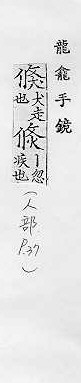 龍龕手鏡
倏犬走也倐丨忽疾也
(人部P.37)